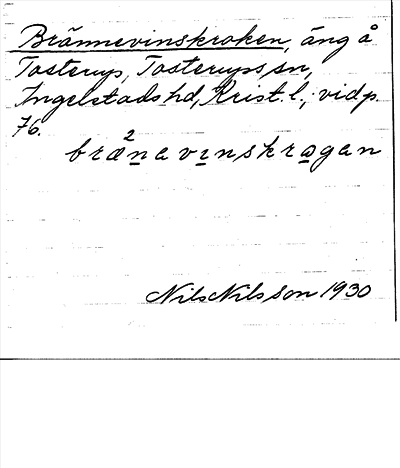 Brännevinskroken, äng å
Tosterup, Tosterups sn,
Ingelstads hd, Krist. l.; vid p.
76.
bræ²na vinskrogan
Nils Nilsson 1930